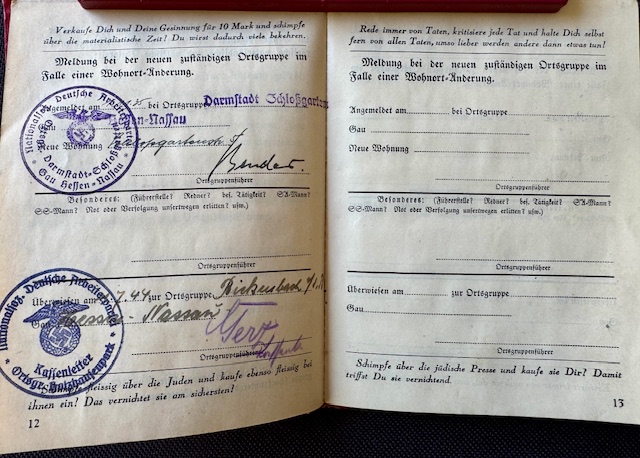 Verkaufe Dich und Deine Gesinnung für 10 Mark und schimpfe
über die materialistische Zeit! Du wirst dadurch viele bekehren.
Meldung bei der neuen zuständigen Ortsgruppe im
Falle einer Wohnort-Änderung.
Angemeldet am bei Ortsgruppe Darmstadt Schloßgarten
Gau Hessen-Nassau
Neue Wohnung
Bender
Ortsgruppenführer
Nationalsoz. Deutsche Arbeiterpartei
Darmstadt-Schloßg
Gau Hessen-Nassau
Besonderes: (Führerstelle? Redner? bes. Tätigkeit? SA-Mann?
SS-Mann? Not oder Verfolgung unsertwegen erlitten? usw.)
Ortsgruppenführer
Überwiesen am 7.44 zur Ortsgruppe Bickenbach
Gau Hessen-Nassau
Ortsgruppenführer
Nationalsoz. Deutsche Arbeiterpartei
Kassenleiter
Ortsgr. Holzhausenpark
fleissig über die Juden und kaufe ebenso fleissig bei
ihnen ein? Das vernichtet sie am sichersten?
12
Rede immer von Taten, kritisiere jede Tat und halte Dich selbst
fern von allen Taten, umso lieber werden andere dann etwas tun!
Meldung bei der neuen zuständigen Ortsgruppe im
Falle einer Wohnort-Änderung.
Angemeldet am bei Ortsgruppe
Gau
Neue Wohnung
Ortsgruppenführer
Besonderes: (Führerstelle? Redner? bes. Tätigkeit? SA-Mann?
SS-Mann? Not oder Verfolgung unsertwegen erlitten? usw.)
Ortsgruppenführer
Überwiesen am zur Ortsgruppe
Gau
Ortsgruppenführer
Schimpfe über die jüdische Presse und kaufe sie Dir? Damit
triffst Du sie vernichtend.
13